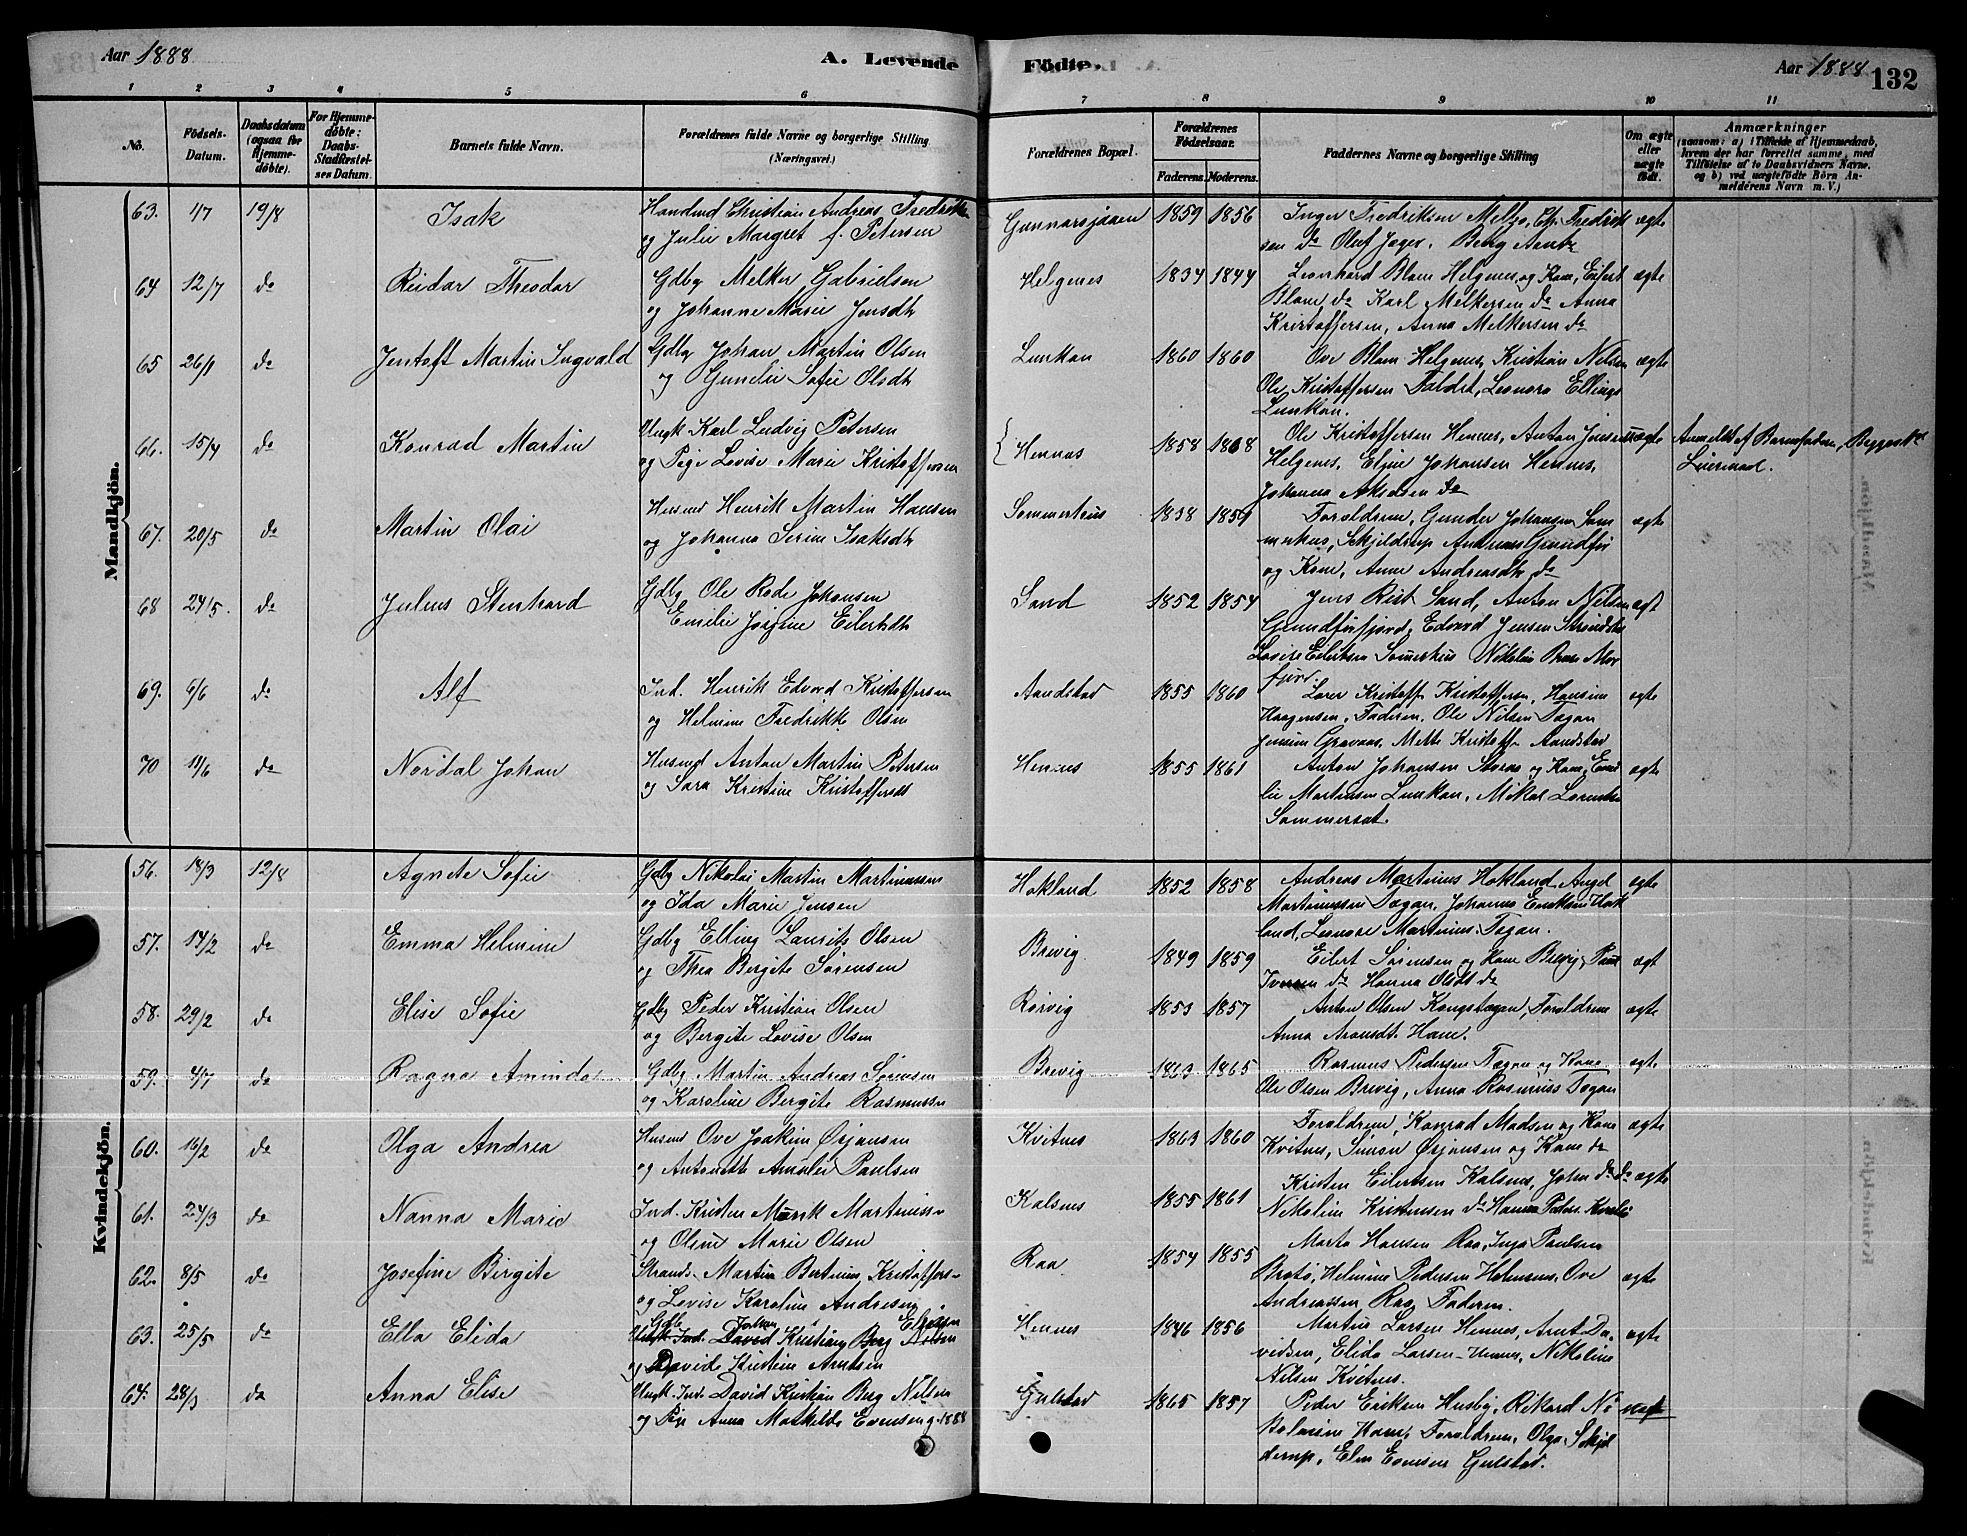 Aar 1888
A. Levende
Födte.
Aar 1888
132
1 2 3 4 5 6 7 8 9 10 11
No.
Födsels-
Datum.
Daabsdatum
(ogsaa for
Hjemme-
döbte).
For Hjemme-
döbte:
Daabs-
Stadfæstel-
ses Datum.
Barnets fulde Navn.
Forældrenes fulde Navne og borgerlige Stilling
(Næringsvei.)
Forældrenes Bopæl.
Forældrenes
Födselsaar.
Faderens. Moderens.
Faddernes Navne og borgerlige Stilling
Om ægte
eller
uægte
født.
Anmærkninger
(saasom: a) i Tilfælde af Hjemmedaab,
hvem der har forrettet samme, med
Tilföielse af to Daabsvidners Navne.
og b) ved uægtefödte Börn An-
melderens Navn m. V.)
Mandkjön.
63. 1/7 19/8 Isak
Christian Andreas
og Julie Margret f. Petersen
Gunnarsjaaen 1859 1856
Inger Fredriksen Melbo,
sen do Oluf Jager. Berg
ægte
64 12/7 do Reidar Theodor
Gdbg Melker Gabrielsen
og Johanne Marie Jensdtr
Helgenes 1834 1844
Leonhard Blom Helgenes, og Kone, Eilert
Blom do Karl Melkersen do Anna
Kristoffersen, Anna Melkersen do
ægte
65 26/1 do Jentoft Martin Ingvald
Gdbg Johan Martin Olsen
og Gunelie Sofie Olsdtr
Lunkan 1860 1860
Ove Blom Helgenes, Kristian Nilsen
Ole Kristoffersen Faldet, Leonora Ellings
Lunkan.
ægte
66. 15/4 do Konrad Martin
Ungk Karl Ludvig Petersen
og Pige Lovise Marie Kristoffersen
Hennes 1858 1868
Ole Kristoffersen Hennes, Anton Jensen
Helgenes, Eline Johansen Hennes,
Johanna Akselsen do
uægte
Anmeldt af Barnefaderen, Begges 1ste
Leiermaal.
67. 20/5 do Martin Olai
Husmd Henrik Martin Hansen
og Johanna Serine Isaksdtr
Sommerhus 1838 1859
Forældrene, Gunder Johansen Som
merhus, Sckjelderup Andreas Grundfør
og Kone, Anne Andreasdtr do
ægte
68 24/5. do Julius Stenhard
Gdbg Ole Rode Johansen
Emilie Josefine Eilertsdtr
Sand 1852 1854
Jens Rist Sand, Anton Nilsen
Grundførfjord, Edvard Jensen
Lovise Eilertsen Sommerhus Nikolai
fjord.
ægt
69. 6/6 do Alf
Ind. Henrik Edvard Kristoffersen
og Helmine Fredrikke Olsen
Aandstad 1855 1860
Kristoff. Kristoffersen, Hansine
Haagensen, Faderen, Ole Nilsen Tøgan
Jensine Gravaas, Mette Kristoff. Aandstad
ægte
70 11/6 do Nordal Johan
Husmd Anton Martin Petersen
og Sara Kristine Kristoffersdt
Hennes 1855 1861
Anton Johansen og Kone, Emi
lie Martinsen Lunkan, Mikal Lorentse
Sommerset.
ægte
Kvindekjön.
56. 18/3 12/8 Agnete Sofie
Gdbg Nikolai Martin Martinussen
og Ida Marie Jensen
Hokland 1852 1858
Andreas Martinus Hokland, Angel
Martinussen Tøgan, Johanna Eriksen Hok
land, Leonore Martinus. Tøgan.
ægte
57. 14/2 do Emma Helmine
Gdbg Elling Laurits Olsen
og Thea Bergite Sørensen
Brevig 1849 1859
Eilert Sørensen og Kone Brevig,
Iversen do Hanna Olsdt do
ægt
58. 29/2 do Elise Sofie
Gdbg Peder Kristian Olsen
og Bergite Lovise Olsen
Rørvig 1853 1857
Anton Olsen Kongstøgan, Forældrene
Anna Arnsdt. Kone.
ægte
59. 4/7 do Ragna Aminda
Gdbg Martin Andreas Sørensen
og Karoline Bergite Rasmussen
Brevig 1863 1865
Rasmus Pedersen Tøgan og Kone
Ole Olsen Brevig, Anna Rasmuss Tøgan
ægte
60. 16/2 do Olga Andrea
Husmd Ove Joakim Ørjansen
og Antonette Amalie Paulsen
Kvitnes 1863 1860
Forældrene, Konrad Madsen og Kone
Kvitnes, Simon Ørjansen og Kone do
ægte
61. 24/3 do Nanna Marie
Ind. Kristen Munk Martinussen
og Oline Marie Olsen
Kalsnes 1855 1861
Kristen Eilertsen Kalsnes, John do do
Nikoline Kristensen do Hanna Peders.
ægte
62. 8/5 do Josefine Birgite
Strands. Martin Bertinus Kristoffers
og Lovise Karoline Andresen
Raa 1854 1855
Marta Hansen Raa, Inga Paulsen
Brotø, Helmine Pedersen Ove
Andreassen Raa, Faderen.
ægte
63. 25/5 do Ella Elida
Gdb Johan Ellingsen
Ungk Ind. David Kristian Berg Nilsen
og Davide Kristine Arntsen
Hennes 1846 1856
Martin Larsen Hennes, Arnt Da
vidsen, Elida Larsen Hennes, Nikoline
Nilsen Kvitnes.
ægte
64. 28/3 do Anna Elise
Ungk. Ind. David Kristian Berg Nilsen
og Pige Anna Mathilde Evensen g. 1888
Gulstad 1865 1857
Peder Eriksen Husby, Rikard
Kone, Forældrene, Olga Sckjel
derup, Elen Evensen Gulstad.
uægt